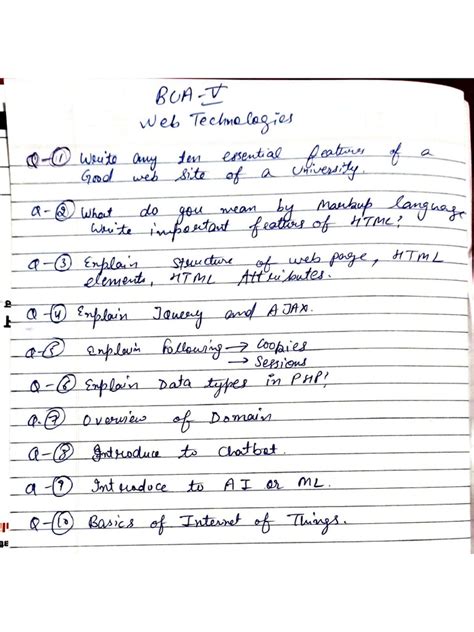 BCA-V
Web Technologies
Q-(1) Write any ten essential features of a
Good web Site of a University.
Q-(2) What do you mean by Markup language
Write important features of HTML?
Q-(3) Explain Structure of web page, HTML
elements, HTML Attributes.
Q-(4) Explain Jquery and AJAX.
Q-(5) Explain following → Cookies
→ Sessions
Q-(6) Explain Data types in PHP!
Q.(7) Overview of Domain
Q-(8) Introduce to Chatbot.
Q-(9) Introduce to AI or ML.
Q-(10) Basics of Internet of Things.